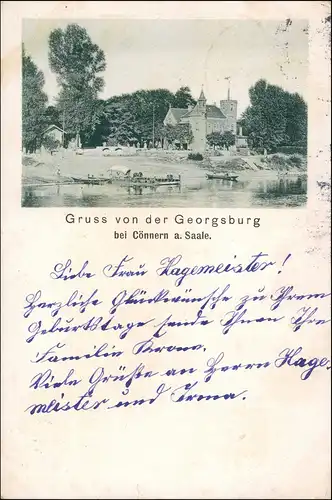 Gruss von der Georgsburg
bei Cönnern a. Saale.
Liebe Frau Hagemeister!
Herzliche Glückwünsche zu Ihrem
Geburtstage sende Ihnen Ihre
Familie
Viele Grüße an Herrn Hage-
meister und Irma.